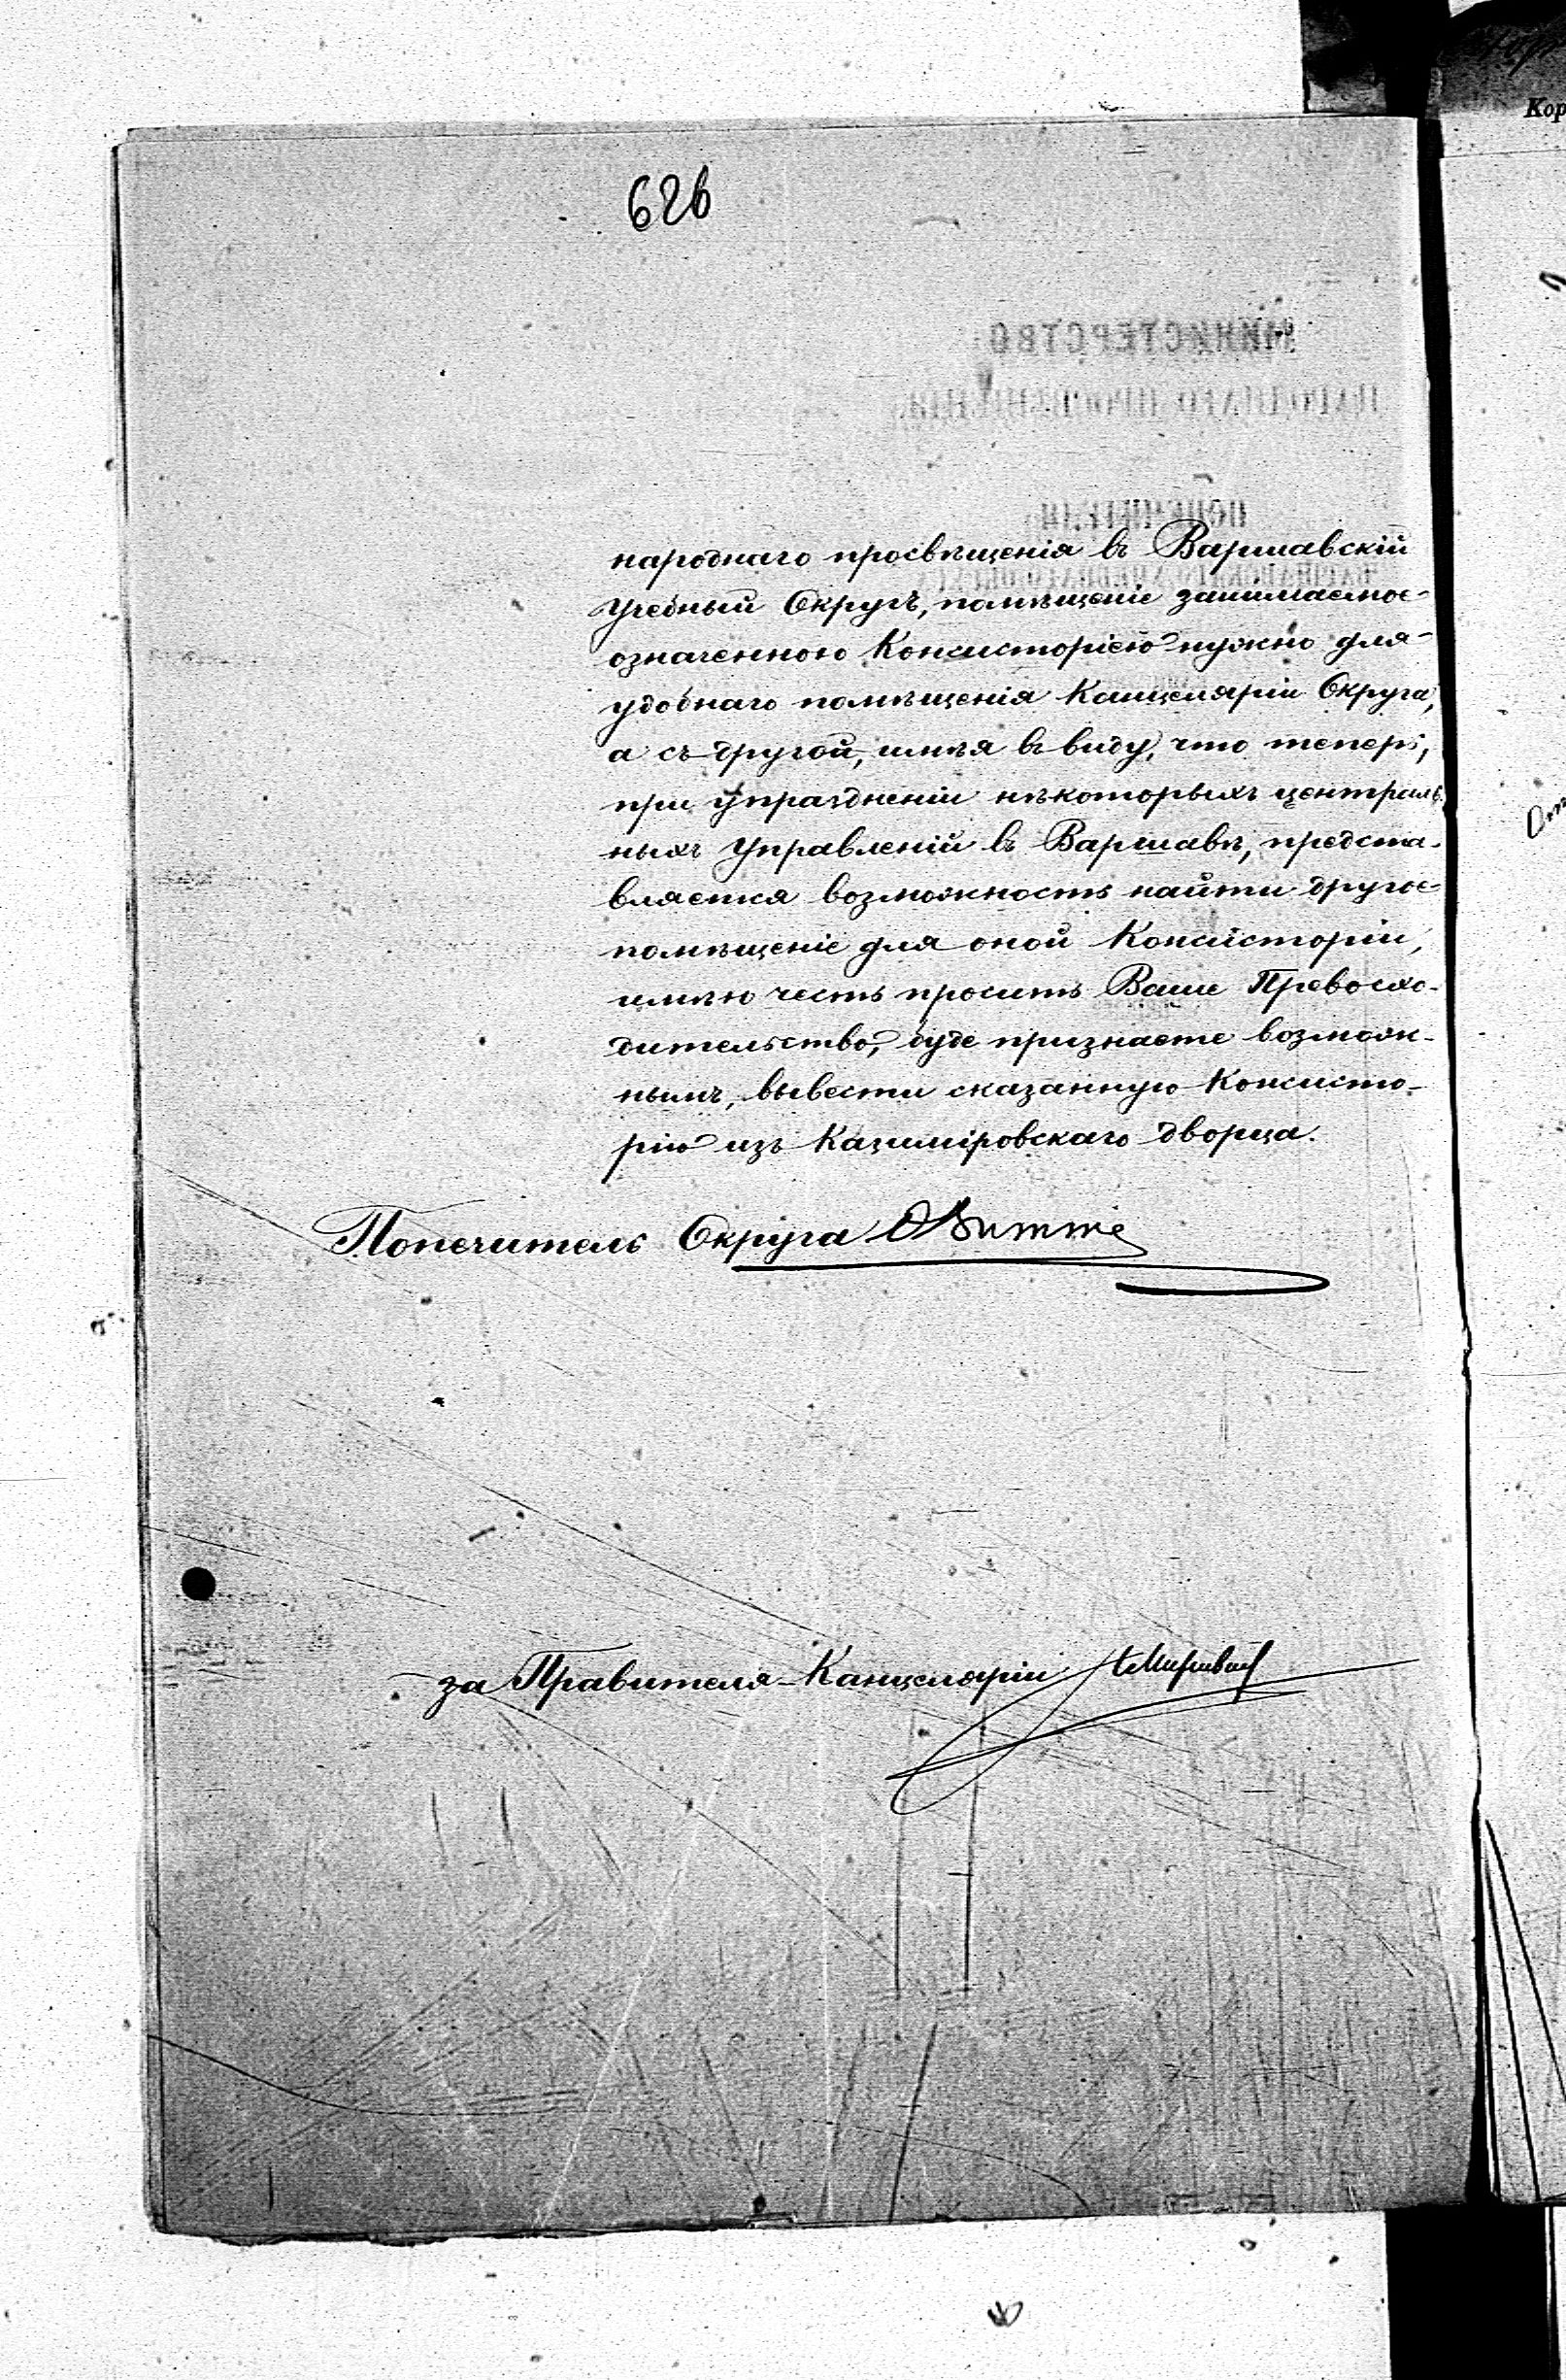 626
народнаго просвѣщенія въ Варшавскій
Учебный Округъ, помѣщеніе занимаемое
означенною Консисторіею нужно для
удобнаго помѣщенія Канцеляріи Округа,
а съ другой, имѣя въ виду, что теперь,
при упраздненіи нѣкоторыхъ централь-
ныхъ Управленій въ Варшавѣ, предста-
вляется возможность найти другое
помѣщеніе для оной Консисторіи,
имѣю честь просить Ваше Превосхо-
дительство, буде признаете возмож-
нымъ, вывести сказанную Консисто-
рію изъ Казиміровскаго дворца.
Попечитель Округа Ѳ Витте
за Правителя Канцеляріи
Кор